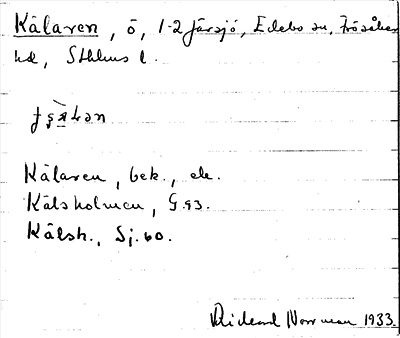 Kälaren, ö, 1-2 Järsjö, Edebo sn, Frösåkers
hd, Sthlms l.
Kälaren, bek., ek.
Kälsholmen, G.93.
Kälsh., Sj. 60.
Rickard Norrman 1933.